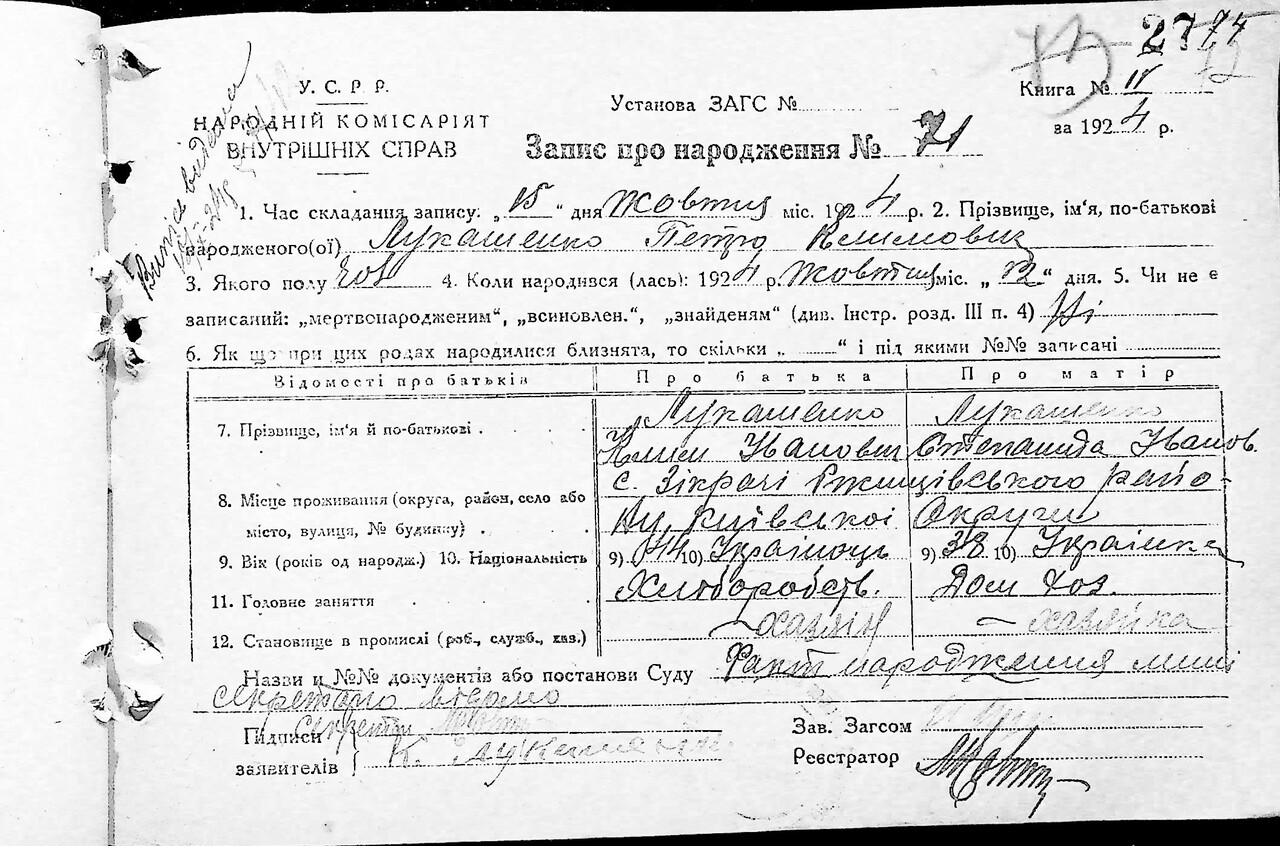 2774
У. С. Р. Р.
НАРОДНІЙ КОМІСАРІЯТ
ВНУТРІШНІХ СПРАВ
Установа ЗАГС №
Книга № IV
за 1924 р.
Запис про народження № 71
Випись видана
1. Час складання запису: „15“ дня Жовтня міс. 1924 р. 2. Прізвище, ім'я, по-батькові
народженого(ої) Лукашенко Петро Климович
3. Якого полу чол 4. Коли народився (лась): 1924 р. Жовтня міс. „12“ дня. 5. Чи не є
записаний: „мертвонародженим“, „всиновлен.“, „знайденям“ (див. Інстр. розд. III п. 4) Ні
6. Як що при цих родах народилися близнята, то скільки „ “ і під якими №№ записані
Відомості про батьків Про батька Про матір
7. Прізвище, ім'я й по-батькові Лукашенко Лукашенко
Клим Іванович Степанида Іванов.
8. Місце проживання (округа, район, село або с. Зікрачі Ржищівського райо-
місто, вулиця, № будинку) ну, Київської Округи
9. Вік (років од народж.) 10. Національність 9) 44 10) Українець 9) 38 10) Українка
11. Головне заняття Хліборобств. Дом хоз.
12. Становище в промислі (роб., служб., хаз.) – хазяїн – хазяйка
Назви и №№ документів або постанови Суду Факт народження мині
секретарю відомо
Підписи
заявителів
Секретар
К. Лукашенко
Зав. Загсом
Реєстратор